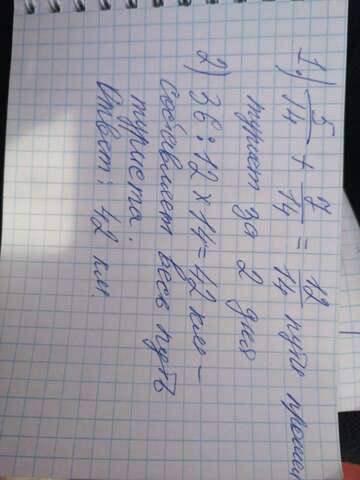 1.) 5/14 + 7/14 = 12/14 пути прошел
турист за 2 дня
2) 36 : 12 × 14 = 42 км –
составляет весь путь
туриста.
Ответ: 42 км.